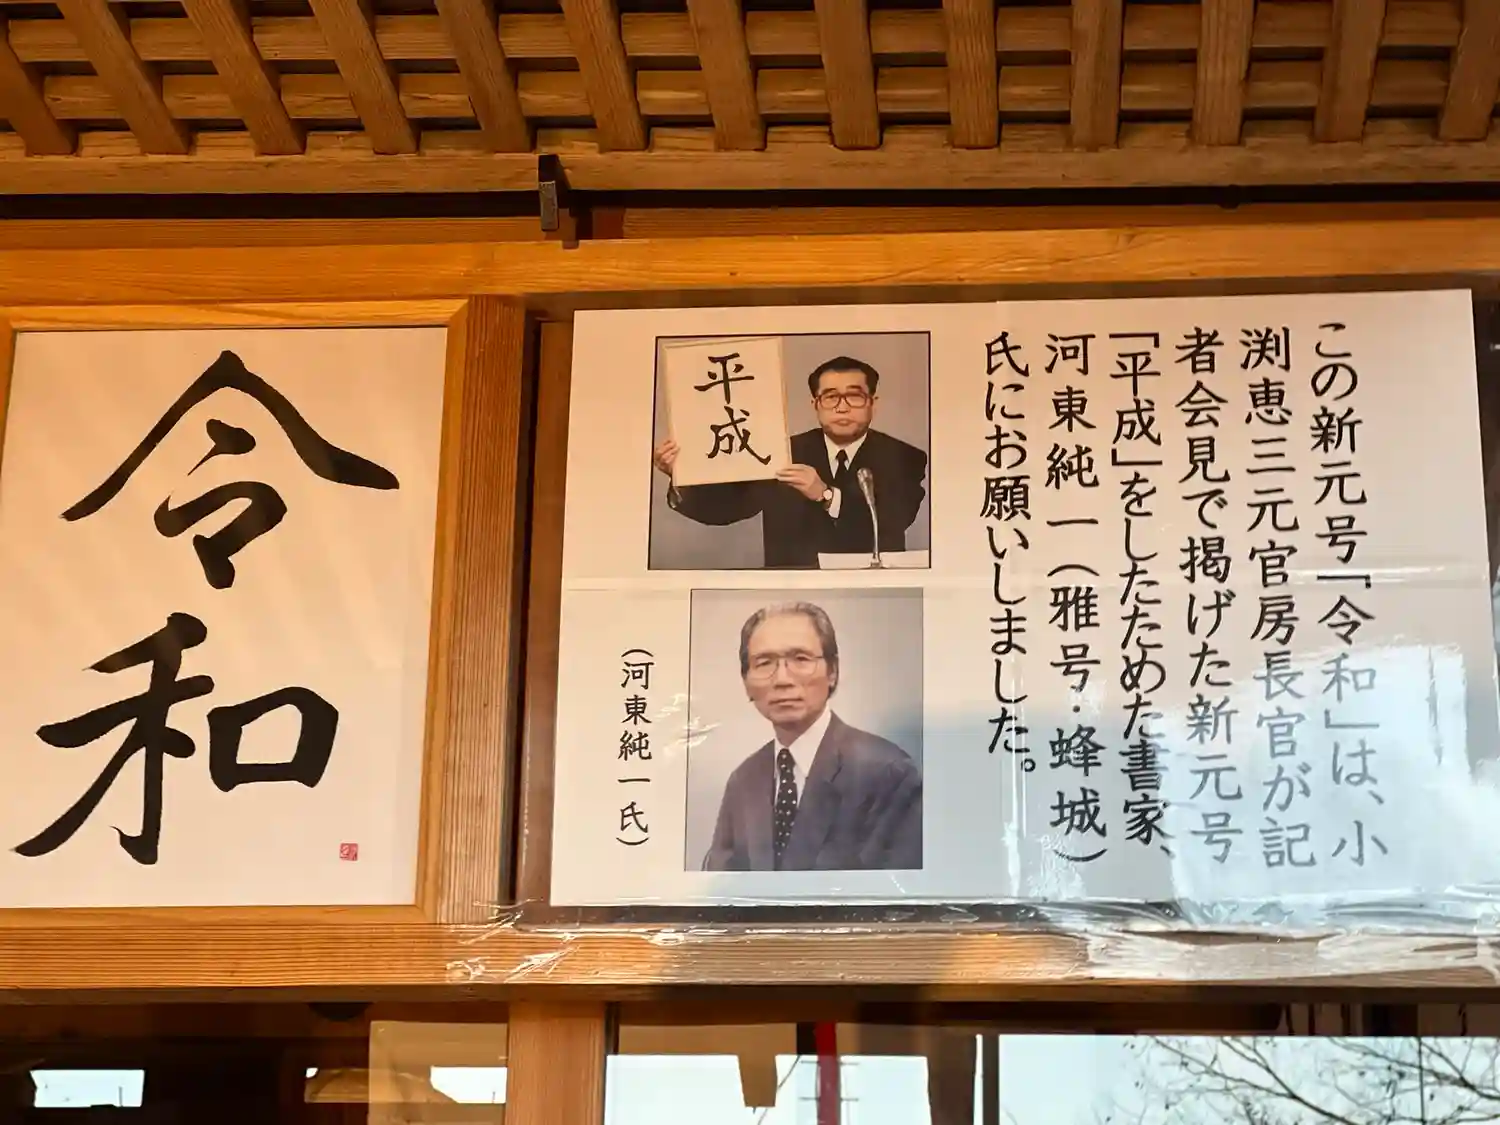 この新元号「令和」は、小
渕恵三元官房長官が記
者会見で掲げた新元号
「平成」をしたためた書家、
河東純一（雅号・蜂城）
氏にお願いしました。
平成
（河東純一氏）
令和